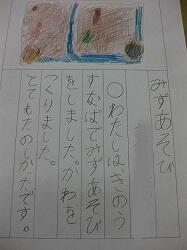 みずあそび
○わたしはきのう
すなばでみずあそび
をしました。かわを
つくりました。
とてもたのしかったです。